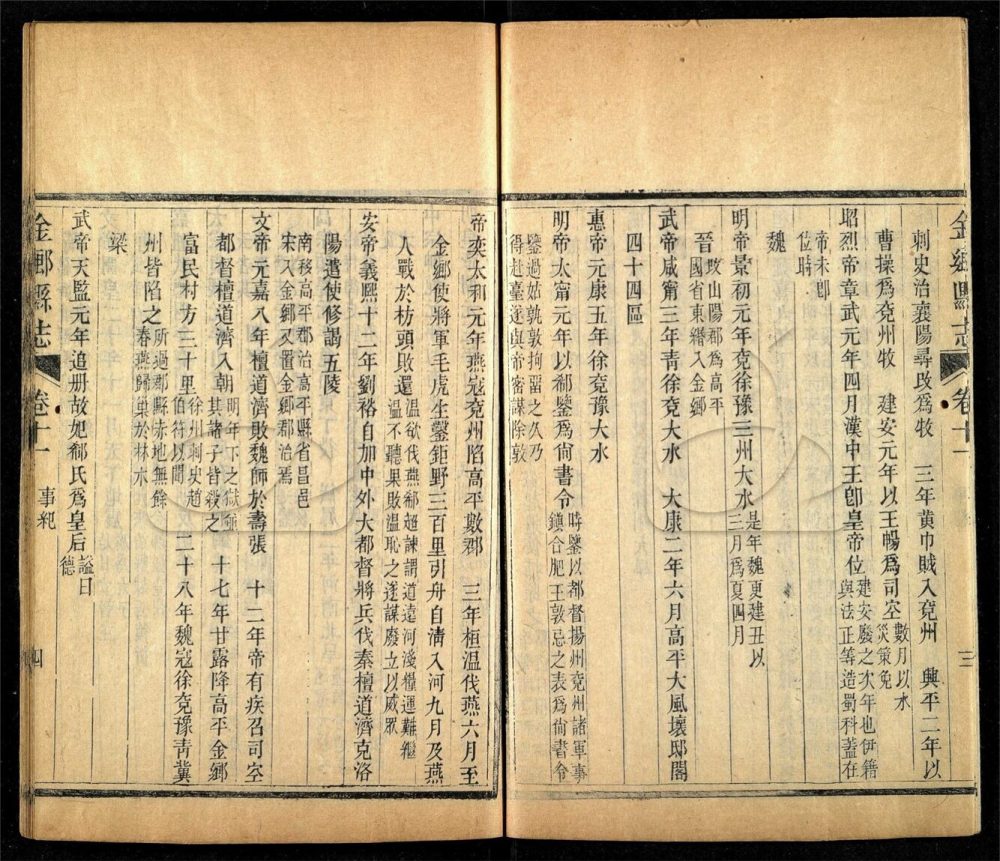 金鄉縣志 卷十一 三
刺史治襄陽尋改爲牧 三年黄巾賊入兗州 興平二年以
曹操爲兗州牧 建安元年以王暢爲司空數月以水災策免
昭烈帝章武元年四月漢中王卽皇帝位建安廢之次年也伊籍與法正等造蜀科蓋在
帝未卽位時
魏
明帝景初元年兗徐豫三州大水是年魏更建丑以三月爲夏四月
晉改山陽郡爲高平國省東緡入金鄉
武帝咸甯三年青徐兗大水 大康二年六月高平大風壞邸閣
四十四區
惠帝元康五年徐兗豫大水
明帝太甯元年以郗鑒爲尙書令時鑒以都督揚州兗州諸軍事鎭合肥王敦忌之表爲尙書令
鑒過姑孰敦拘畱之久乃得赴臺遂與帝密謀除敦
帝奕太和元年燕寇兗州陷高平數郡 三年桓温伐燕六月至
金鄉使將軍毛虎生鑿鉅野三百里引舟自淸入河九月及燕
人戰於枋頭敗還温欲伐燕郗超諫謂道遠河淺糧運難繼温不聽果敗温恥之遂謀廢立以威眾
安帝義熙十二年劉裕自加中外大都督將兵伐秦檀道濟克洛
陽遣使修謁五陵
宋南移高平郡治高平縣省昌邑入金鄉又置金鄉郡治焉
文帝元嘉八年檀道濟敗魏師於壽張 十二年帝有疾召司空
都督檀道濟入朝明年下之獄并其諸子皆殺之 十七年甘露降高平金鄉
富民村方三十里徐州刺史趙伯符以聞 二十八年魏寇徐兗豫青冀
州皆陷之所過郡縣赤地無餘春燕歸巢於林木
梁
武帝天監元年追册故妃郗氏爲皇后謚曰德
金鄉縣志 卷十一 事紀 四